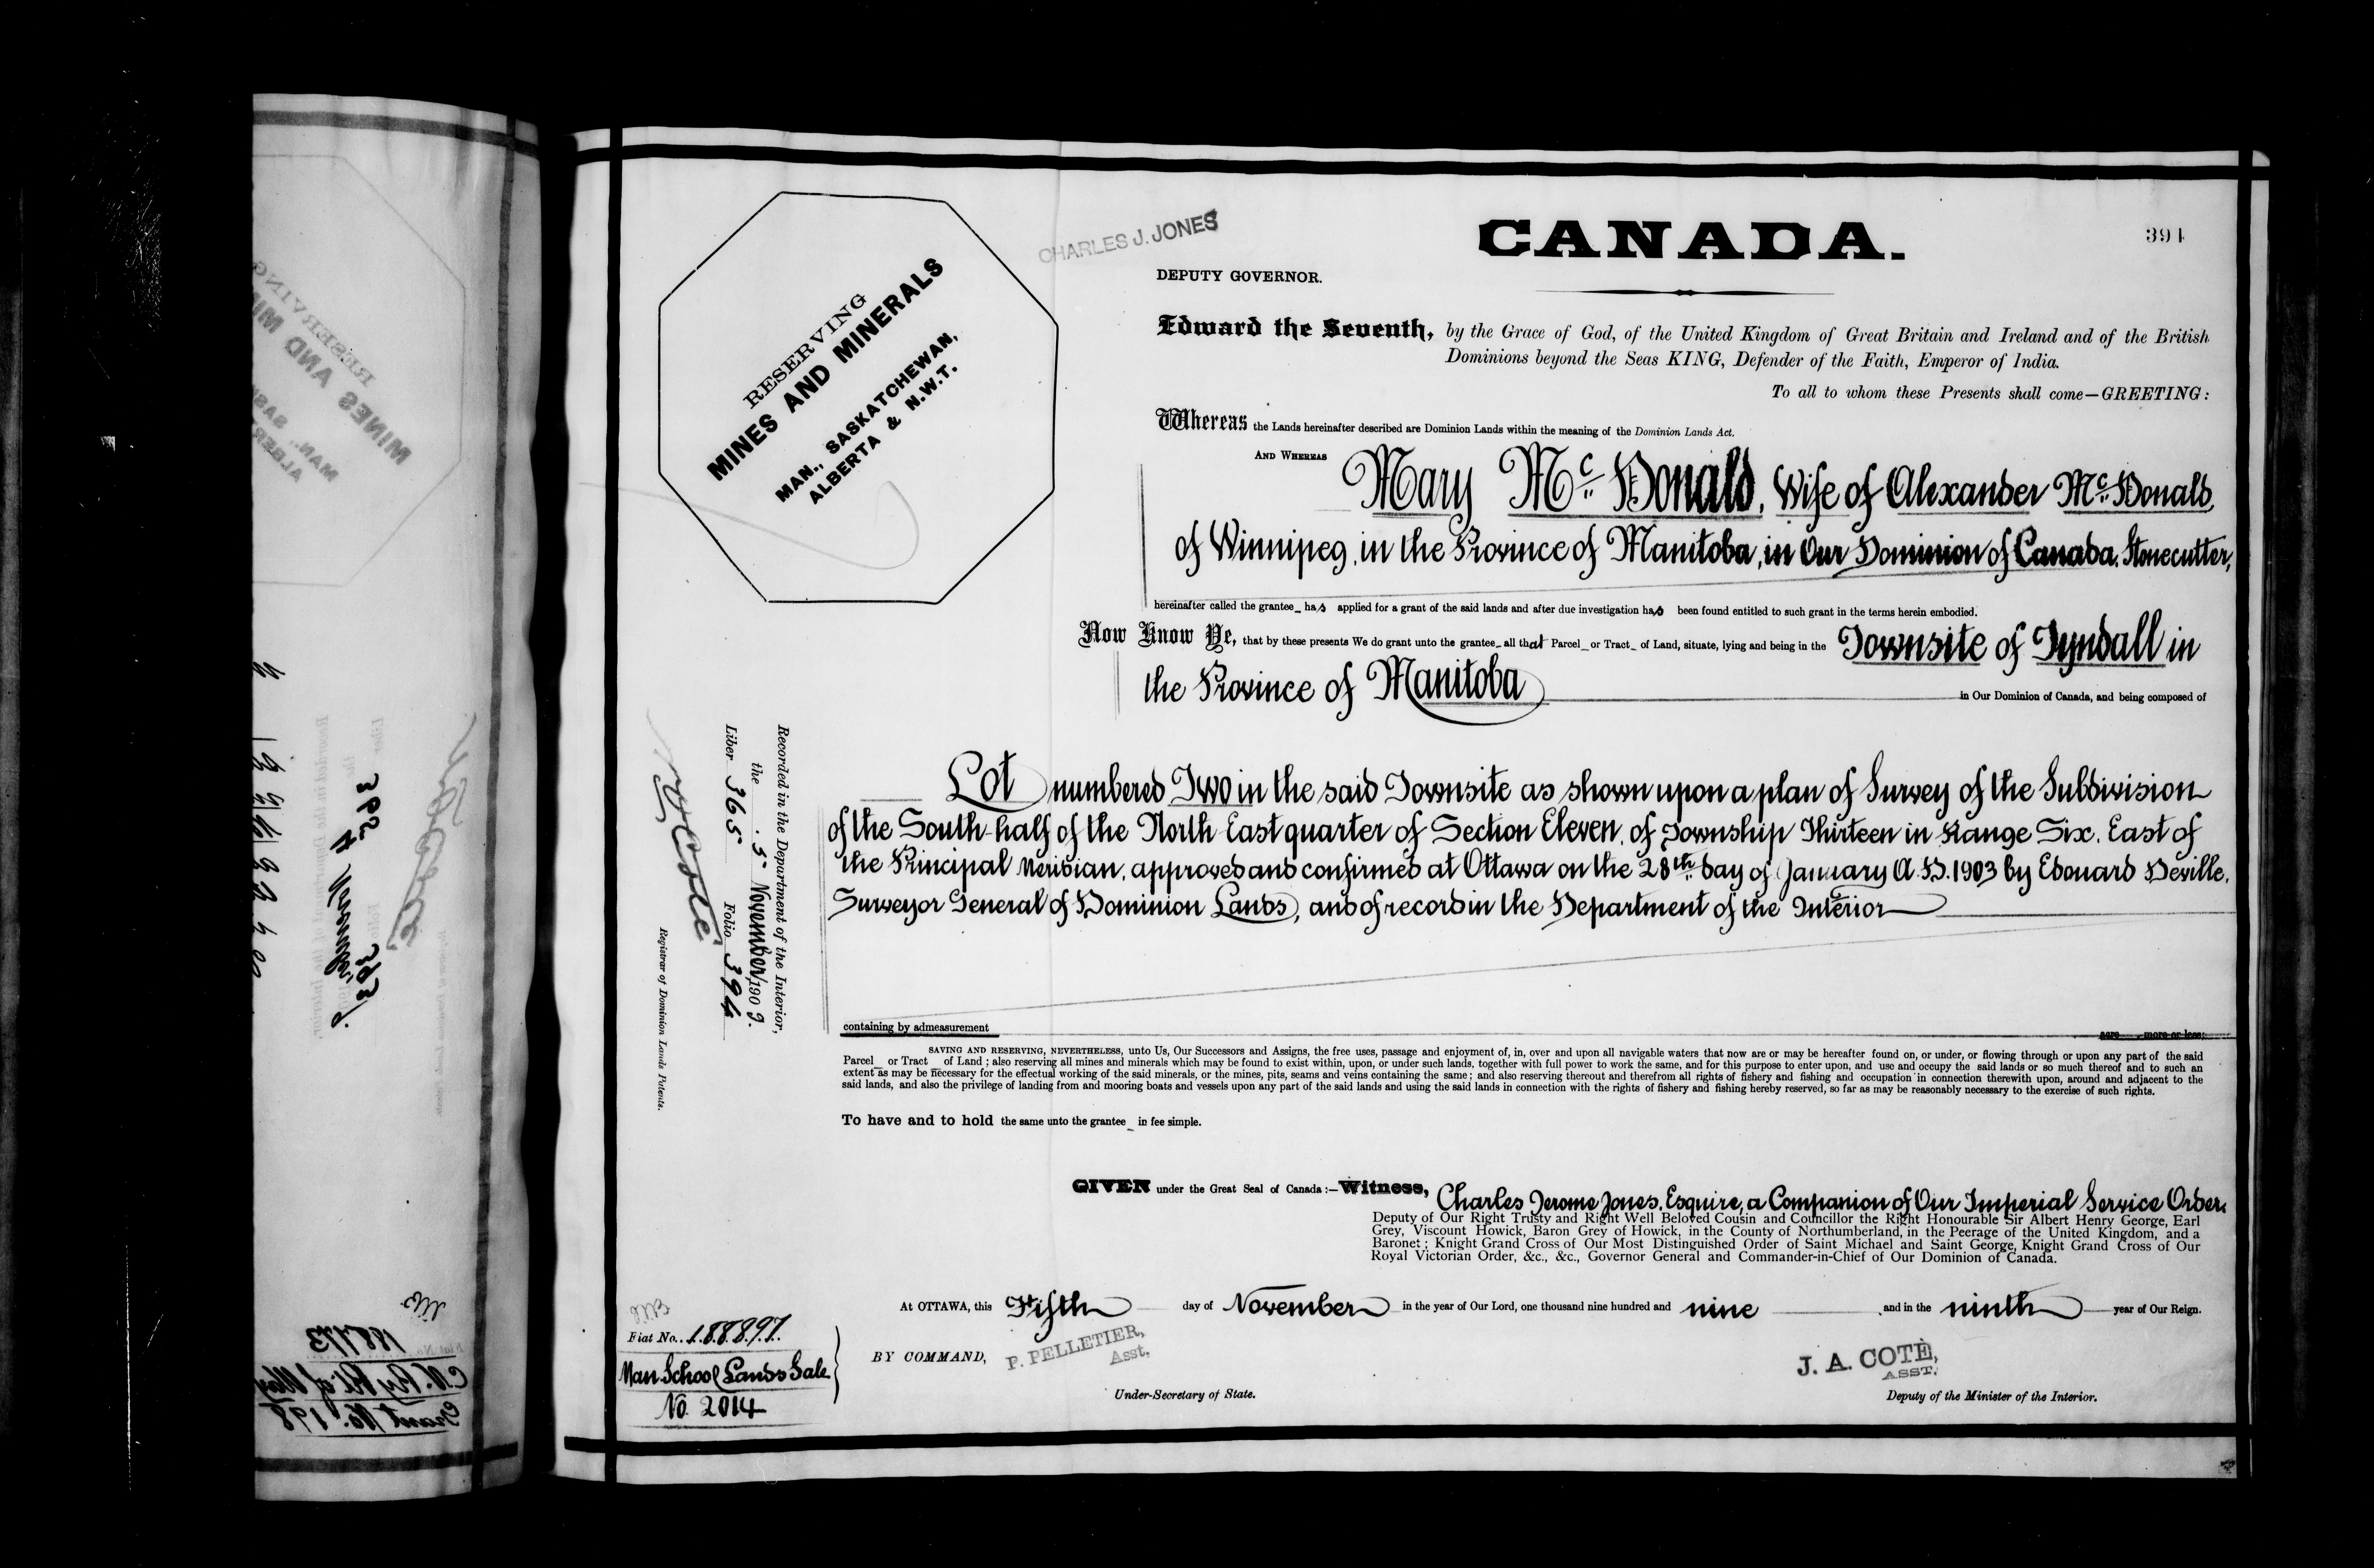 CHARLES J. JONES
CANADA.
394
DEPUTY GOVERNOR.
RESERVING
MINES AND MINERALS
MAN., SASKATCHEWAN,
ALBERTA & N.W.T.
Edward the Seventh, by the Grace of God, of the United Kingdom of Great Britain and Ireland and of the British
Dominions beyond the Seas KING, Defender of the Faith, Emperor of India.
To all to whom these Presents shall come—GREETING:
Whereas the Lands hereinafter described are Dominion Lands within the meaning of the Dominion Lands Act.
AND WHEREAS Mary Mc Donald, Wife of Alexander Mc Donald,
of Winnipeg, in the Province of Manitoba, in Our Dominion of Canada, Stonecutter,
hereinafter called the grantee_ has applied for a grant of the said lands and after due investigation has been found entitled to such grant in the terms herein embodied.
Now Know Ye, that by these presents We do grant unto the grantee_ all that Parcel_ or Tract_ of Land, situate, lying and being in the Townsite of Tyndall in
the Province of Manitoba in Our Dominion of Canada, and being composed of
Lot numbered Two in the said Townsite as shown upon a plan of Survey of the Subdivision
of the South-half of the North East quarter of Section Eleven, of Township Thirteen in Range Six, East of
the Principal Meridian, approved and confirmed at Ottawa on the 28th day of January A.D. 1903 by Edouard Deville,
Surveyor General of Dominion Lands, and of record in the Department of the Interior
containing by admeasurement acre more or less:
SAVING AND RESERVING, NEVERTHELESS, unto Us, Our Successors and Assigns, the free uses, passage and enjoyment of, in, over and upon all navigable waters that now are or may be hereafter found on, or under, or flowing through or upon any part of the said
Parcel_ or Tract_ of Land; also reserving all mines and minerals which may be found to exist within, upon, or under such lands, together with full power to work the same, and for this purpose to enter upon, and use and occupy the said lands or so much thereof and to such an
extent as may be necessary for the effectual working of the said minerals, or the mines, pits, seams and veins containing the same; and also reserving thereout and therefrom all rights of fishery and fishing and occupation in connection therewith upon, around and adjacent to the
said lands, and also the privilege of landing from and mooring boats and vessels upon any part of the said lands and using the said lands in connection with the rights of fishery and fishing hereby reserved, so far as may be reasonably necessary to the exercise of such rights.
To have and to hold the same unto the grantee_ in fee simple.
GIVEN under the Great Seal of Canada:—Witness, Charles Jerome Jones, Esquire, a Companion of Our Imperial Service Order,
Deputy of Our Right Trusty and Right Well Beloved Cousin and Councillor the Right Honourable Sir Albert Henry George, Earl
Grey, Viscount Howick, Baron Grey of Howick, in the County of Northumberland, in the Peerage of the United Kingdom, and a
Baronet; Knight Grand Cross of Our Most Distinguished Order of Saint Michael and Saint George, Knight Grand Cross of Our
Royal Victorian Order, &c., &c., Governor General and Commander-in-Chief of Our Dominion of Canada.
At OTTAWA, this Fifth day of November in the year of Our Lord, one thousand nine hundred and nine and in the ninth year of Our Reign.
BY COMMAND,
P. PELLETIER,
Asst.
Under-Secretary of State.
J. A. COTÉ,
ASST.
Deputy of the Minister of the Interior.
Fiat No. 188897.
Man. School Lands Sale
No. 2014
Recorded in the Department of the Interior,
the 5 November, 1909.
Liber 365 Folio 394
Registrar of Dominion Lands Patents.